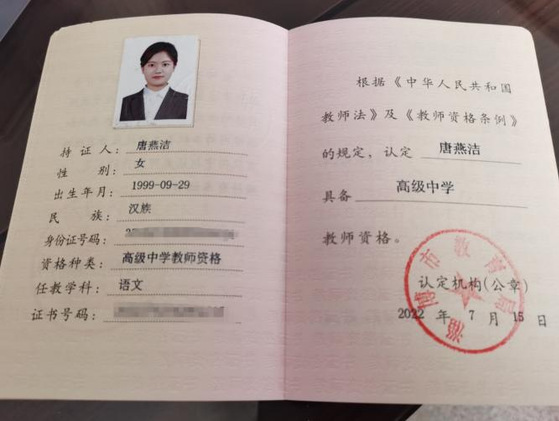 持证人：唐燕洁
性别：女
出生年月：1999-09-29
民族：汉族
身份证号码：
资格种类：高级中学教师资格
任教学科：语文
证书号码：
根据《中华人民共和国
教师法》及《教师资格条例》
的规定，认定 唐燕洁
具备 高级中学
教师资格。
淄博市教育局
认定机构(公章)
2022 年 7 月 15 日